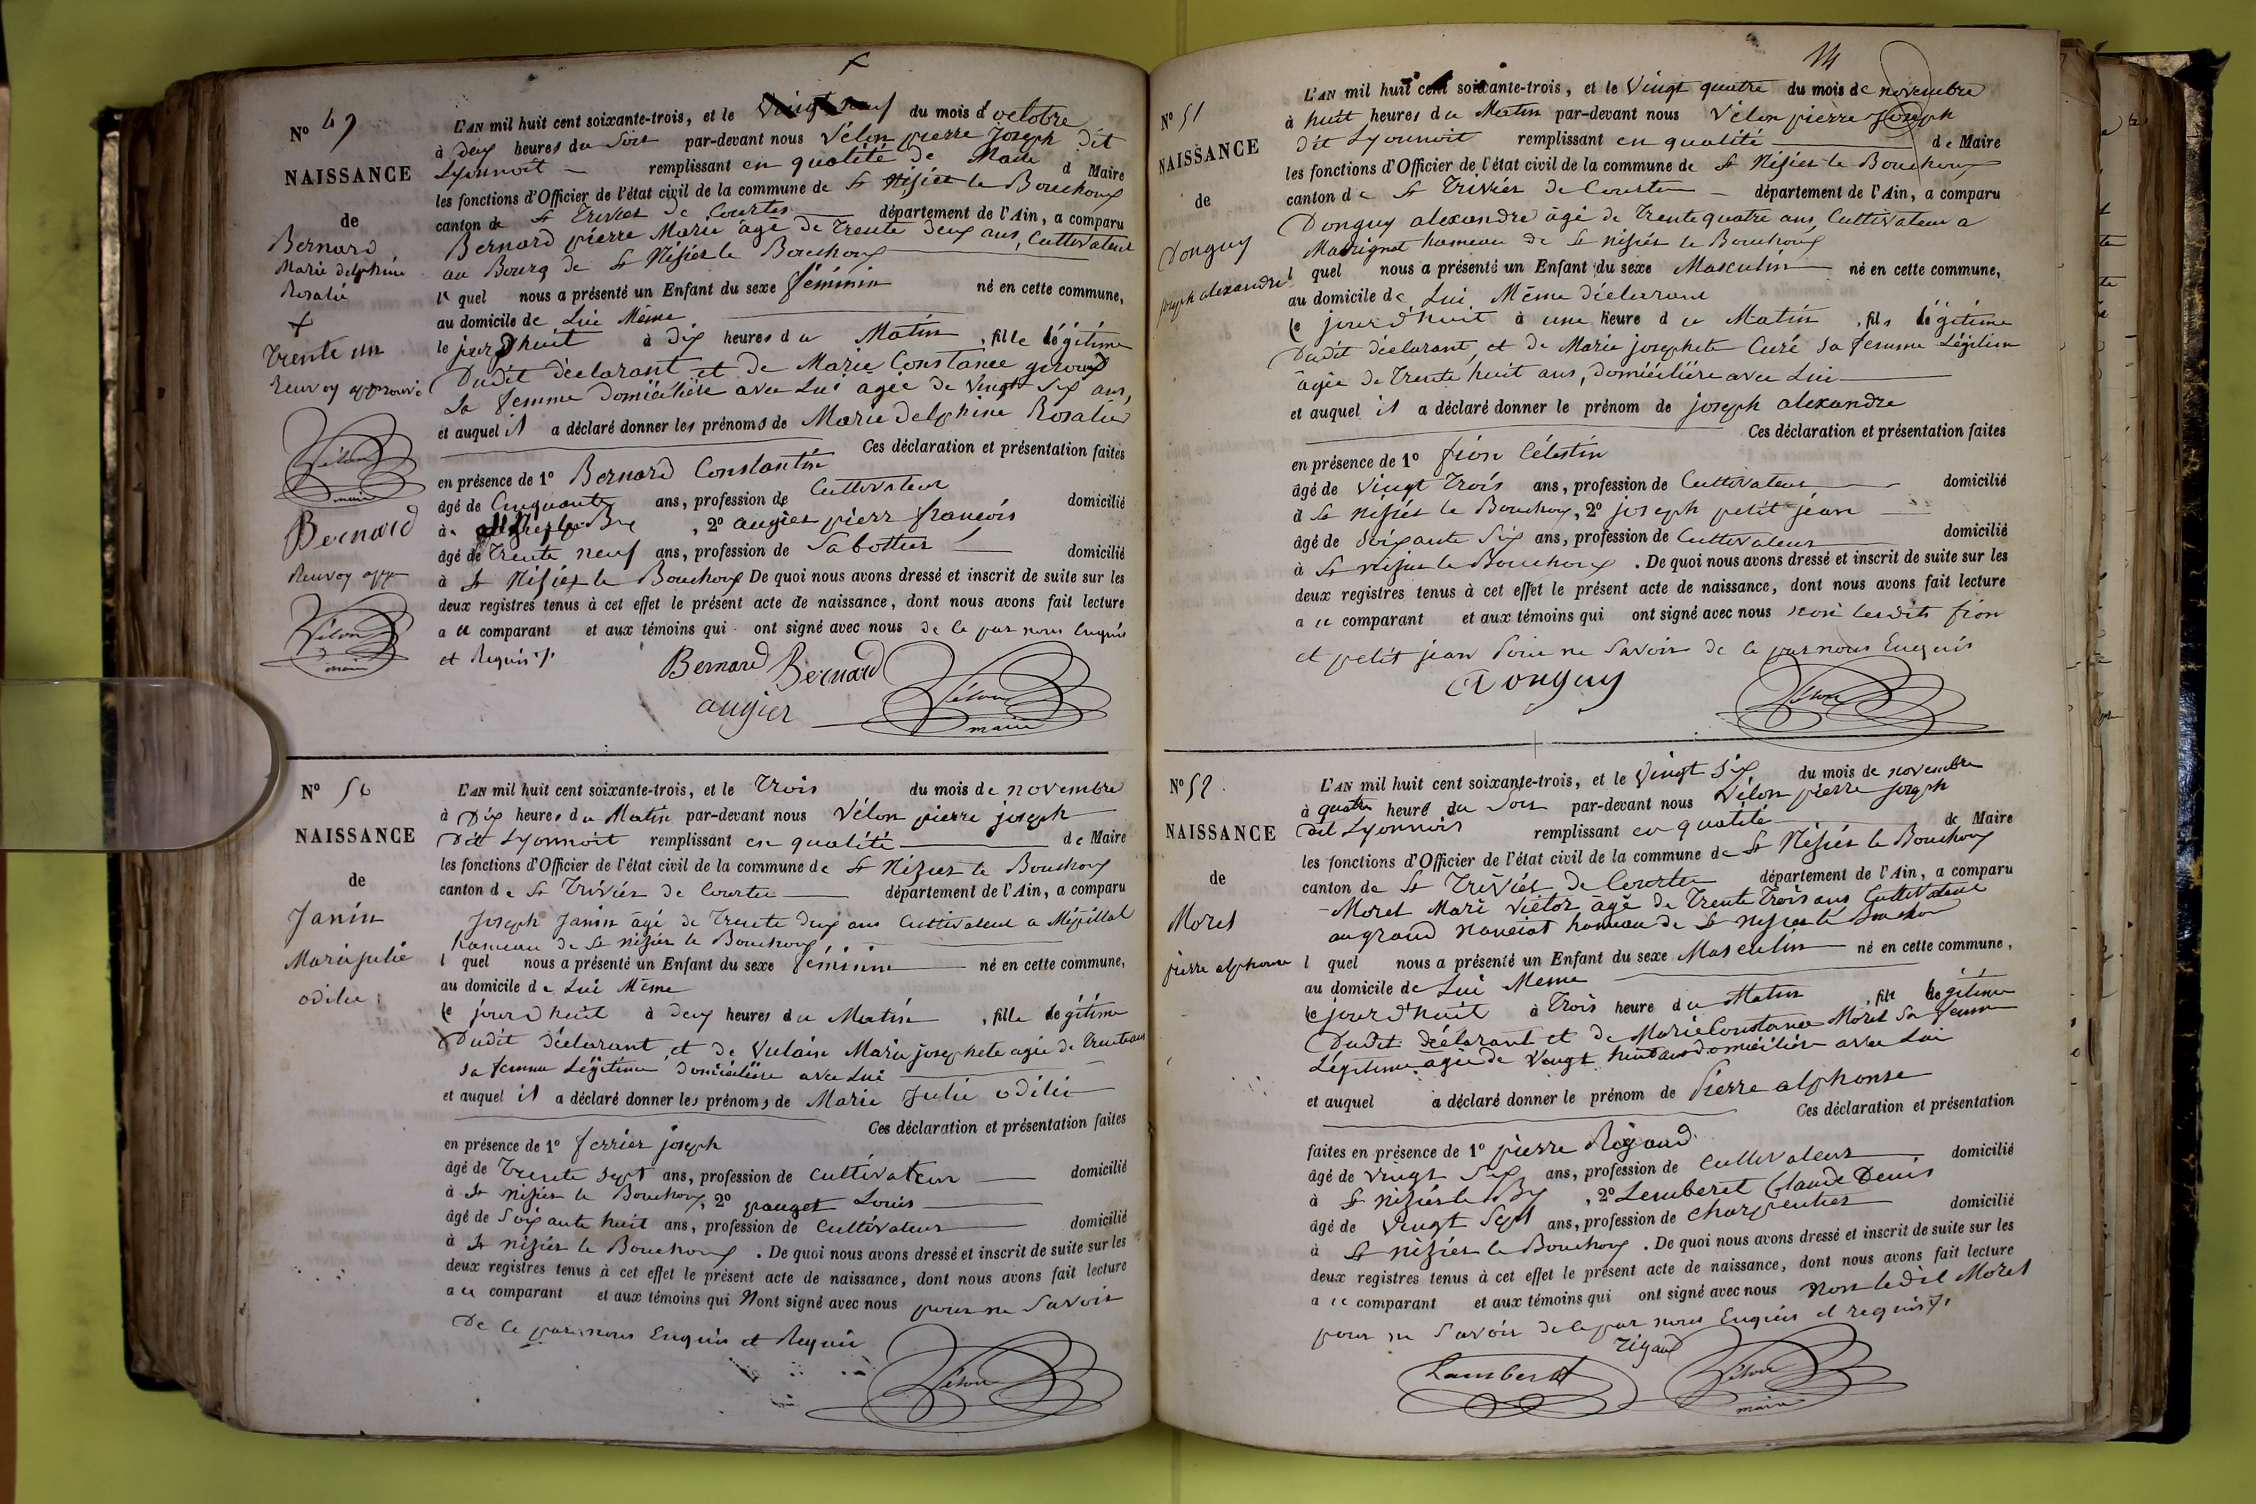 +
N° 49
NAISSANCE
de
Bernard
Marie delphine
Rosalie
+
trente un
Renvoy approuvé
Vélon
maire
Bernard
Renvoy app
Vélon
maire
L'AN mil huit cent soixante-trois, et le vingt neuf du mois d'octobre
à deux heures du Soir par-devant nous Vélon pierre Joseph dit
Lyonnoit remplissant en qualité de Maire d Maire
les fonctions d'Officier de l'état civil de la commune de St Nisier le Bouchoux
canton de St Trivier de Courtes département de l'Ain, a comparu
Bernard pierre Marie âgé de trente deux ans, Cultivateur
au Bourg de St Nisier le Bouchoux
le quel nous a présenté un Enfant du sexe féminin né en cette commune,
au domicile de Lui Même
le jourd'huit à dix heures du Matin, fille légitime
Dudit déclarant et de Marie Constance giroud
Sa femme domiciliére avec Lui agée de vingt Six ans,
et auquel il a déclaré donner les prénoms de Marie delphine Rosalie
Ces déclaration et présentation faites
en présence de 1° Bernard Constantin
âgé de Cinquante ans, profession de Cultivateur domicilié
à , 2° augier pierr françois
âgé de trente neuf ans, profession de Sabottier domicilié
à St Nisier le Bouchoux De quoi nous avons dressé et inscrit de suite sur les
deux registres tenus à cet effet le présent acte de naissance, dont nous avons fait lecture
a ce comparant et aux témoins qui ont signé avec nous de ce par nous Enquis
et Requis
Bernard Bernard
augier Vélon
maire
N° 50
NAISSANCE
de
Janin
Marie julie
odilie
L'AN mil huit cent soixante-trois, et le trois du mois de novembre
à Dix heures du Matin par-devant nous Vélon pierre joseph
Dit Lyonnoit remplissant en qualité de Maire
les fonctions d'Officier de l'état civil de la commune de St Nizier le Bouchoux
canton de St Trivier de Courtes département de l'Ain, a comparu
Joseph Janin âgé de trente deux ans Cultivateur a Mépillat
hameau de St nizier le Bouchoux
l quel nous a présenté un Enfant du sexe féminin né en cette commune,
au domicile de Lui Même
le jourd'huit à deux heures du Matin, fille légitime
Dudit déclarant et de Vulain Marie josephete agée de trente ans
sa femme Légitime domiciliére avec Lui
et auquel il a déclaré donner les prénoms de Marie Julie odilie
Ces déclaration et présentation faites
en présence de 1° ferrier joseph
âgé de trente sept ans, profession de cultivateur domicilié
à St nizier le Bouchoux, 2° pauget Louis
âgé de Soixante huit ans, profession de cultivateur domicilié
à St nizier le Bouchoux. De quoi nous avons dressé et inscrit de suite sur les
deux registres tenus à cet effet le présent acte de naissance, dont nous avons fait lecture
a ce comparant et aux témoins qui Nont signé avec nous pour ne Savoir
De ce par nous Enquis et Requis
Vélon
14
N° 51
NAISSANCE
de
Donguy
joseph alexandre
L'AN mil huit cent soixante-trois, et le Vingt quatre du mois de novembre
à huit heures du Matin par-devant nous Vélon pierre Joseph
dit Lyonnoit remplissant en qualité de Maire
les fonctions d'Officier de l'état civil de la commune de St Nisier le Bouchoux
canton de St Trivier de Courtes département de l'Ain, a comparu
Donguy alexandre âgé de trente quatre ans, Cultivateur a
hameau de St nisier le Bouchoux
l quel nous a présenté un Enfant du sexe Masculin né en cette commune,
au domicile de Lui Même déclarant
le jourd'huit à une heure du Matin, fils légitime
Dudit déclarant, et de Marie josephete Curé sa femme Légitime
âgée de trente huit ans, domiciliére avec Lui
et auquel il a déclaré donner le prénom de joseph alexandre
Ces déclaration et présentation faites
en présence de 1° fion Célestin
âgé de vingt trois ans, profession de Cultivateur domicilié
à St Nisier le Bouchoux, 2° joseph petit jean
âgé de Soixante Six ans, profession de Cultivateur domicilié
à St nizier le Bouchoux. De quoi nous avons dressé et inscrit de suite sur les
deux registres tenus à cet effet le présent acte de naissance, dont nous avons fait lecture
a ce comparant et aux témoins qui ont signé avec nous non lesdits fion
et petit jean pour ne Savoir de ce par nous Enquis
Donguy Vélon
N° 52
NAISSANCE
de
Morel
pierre alphonse
L'AN mil huit cent soixante-trois, et le Vingt Six du mois de novembre
à quatre heure du Soir par-devant nous Vélon pierre joseph
dit Lyonnois remplissant en qualité de Maire
les fonctions d'Officier de l'état civil de la commune de St Nisier le Bouchoux
canton de St Trivier de Courtes département de l'Ain, a comparu
Morel Marie Victor âgé de trente trois ans Cultivateur
au grand hameau de St nisier le Bouchoux
l quel nous a présenté un Enfant du sexe Masculin né en cette commune,
au domicile de Lui Meme
le jourd'huit à trois heure du Matin, fils légitime
Dudit déclarant et de Marie Constance Morel Sa femme
Légitime agée de Vingt huit ans domiciliére avec Lui
et auquel a déclaré donner le prénom de Pierre alphonse
Ces déclaration et présentation
faites en présence de 1° pierre Rigaud
âgé de vingt Six ans, profession de cultivateur domicilié
à St nizier le Bx, 2° Lemberet Claude Denis
âgé de Vingt Sept ans, profession de charpentier domicilié
à St nizier le Bouchoux. De quoi nous avons dressé et inscrit de suite sur les
deux registres tenus à cet effet le présent acte de naissance, dont nous avons fait lecture
a ce comparant et aux témoins qui ont signé avec nous Non ledit Morel
pour ne Savoir de ce par nous Enquis et requis
rigaud
Lamberet Vélon
maire